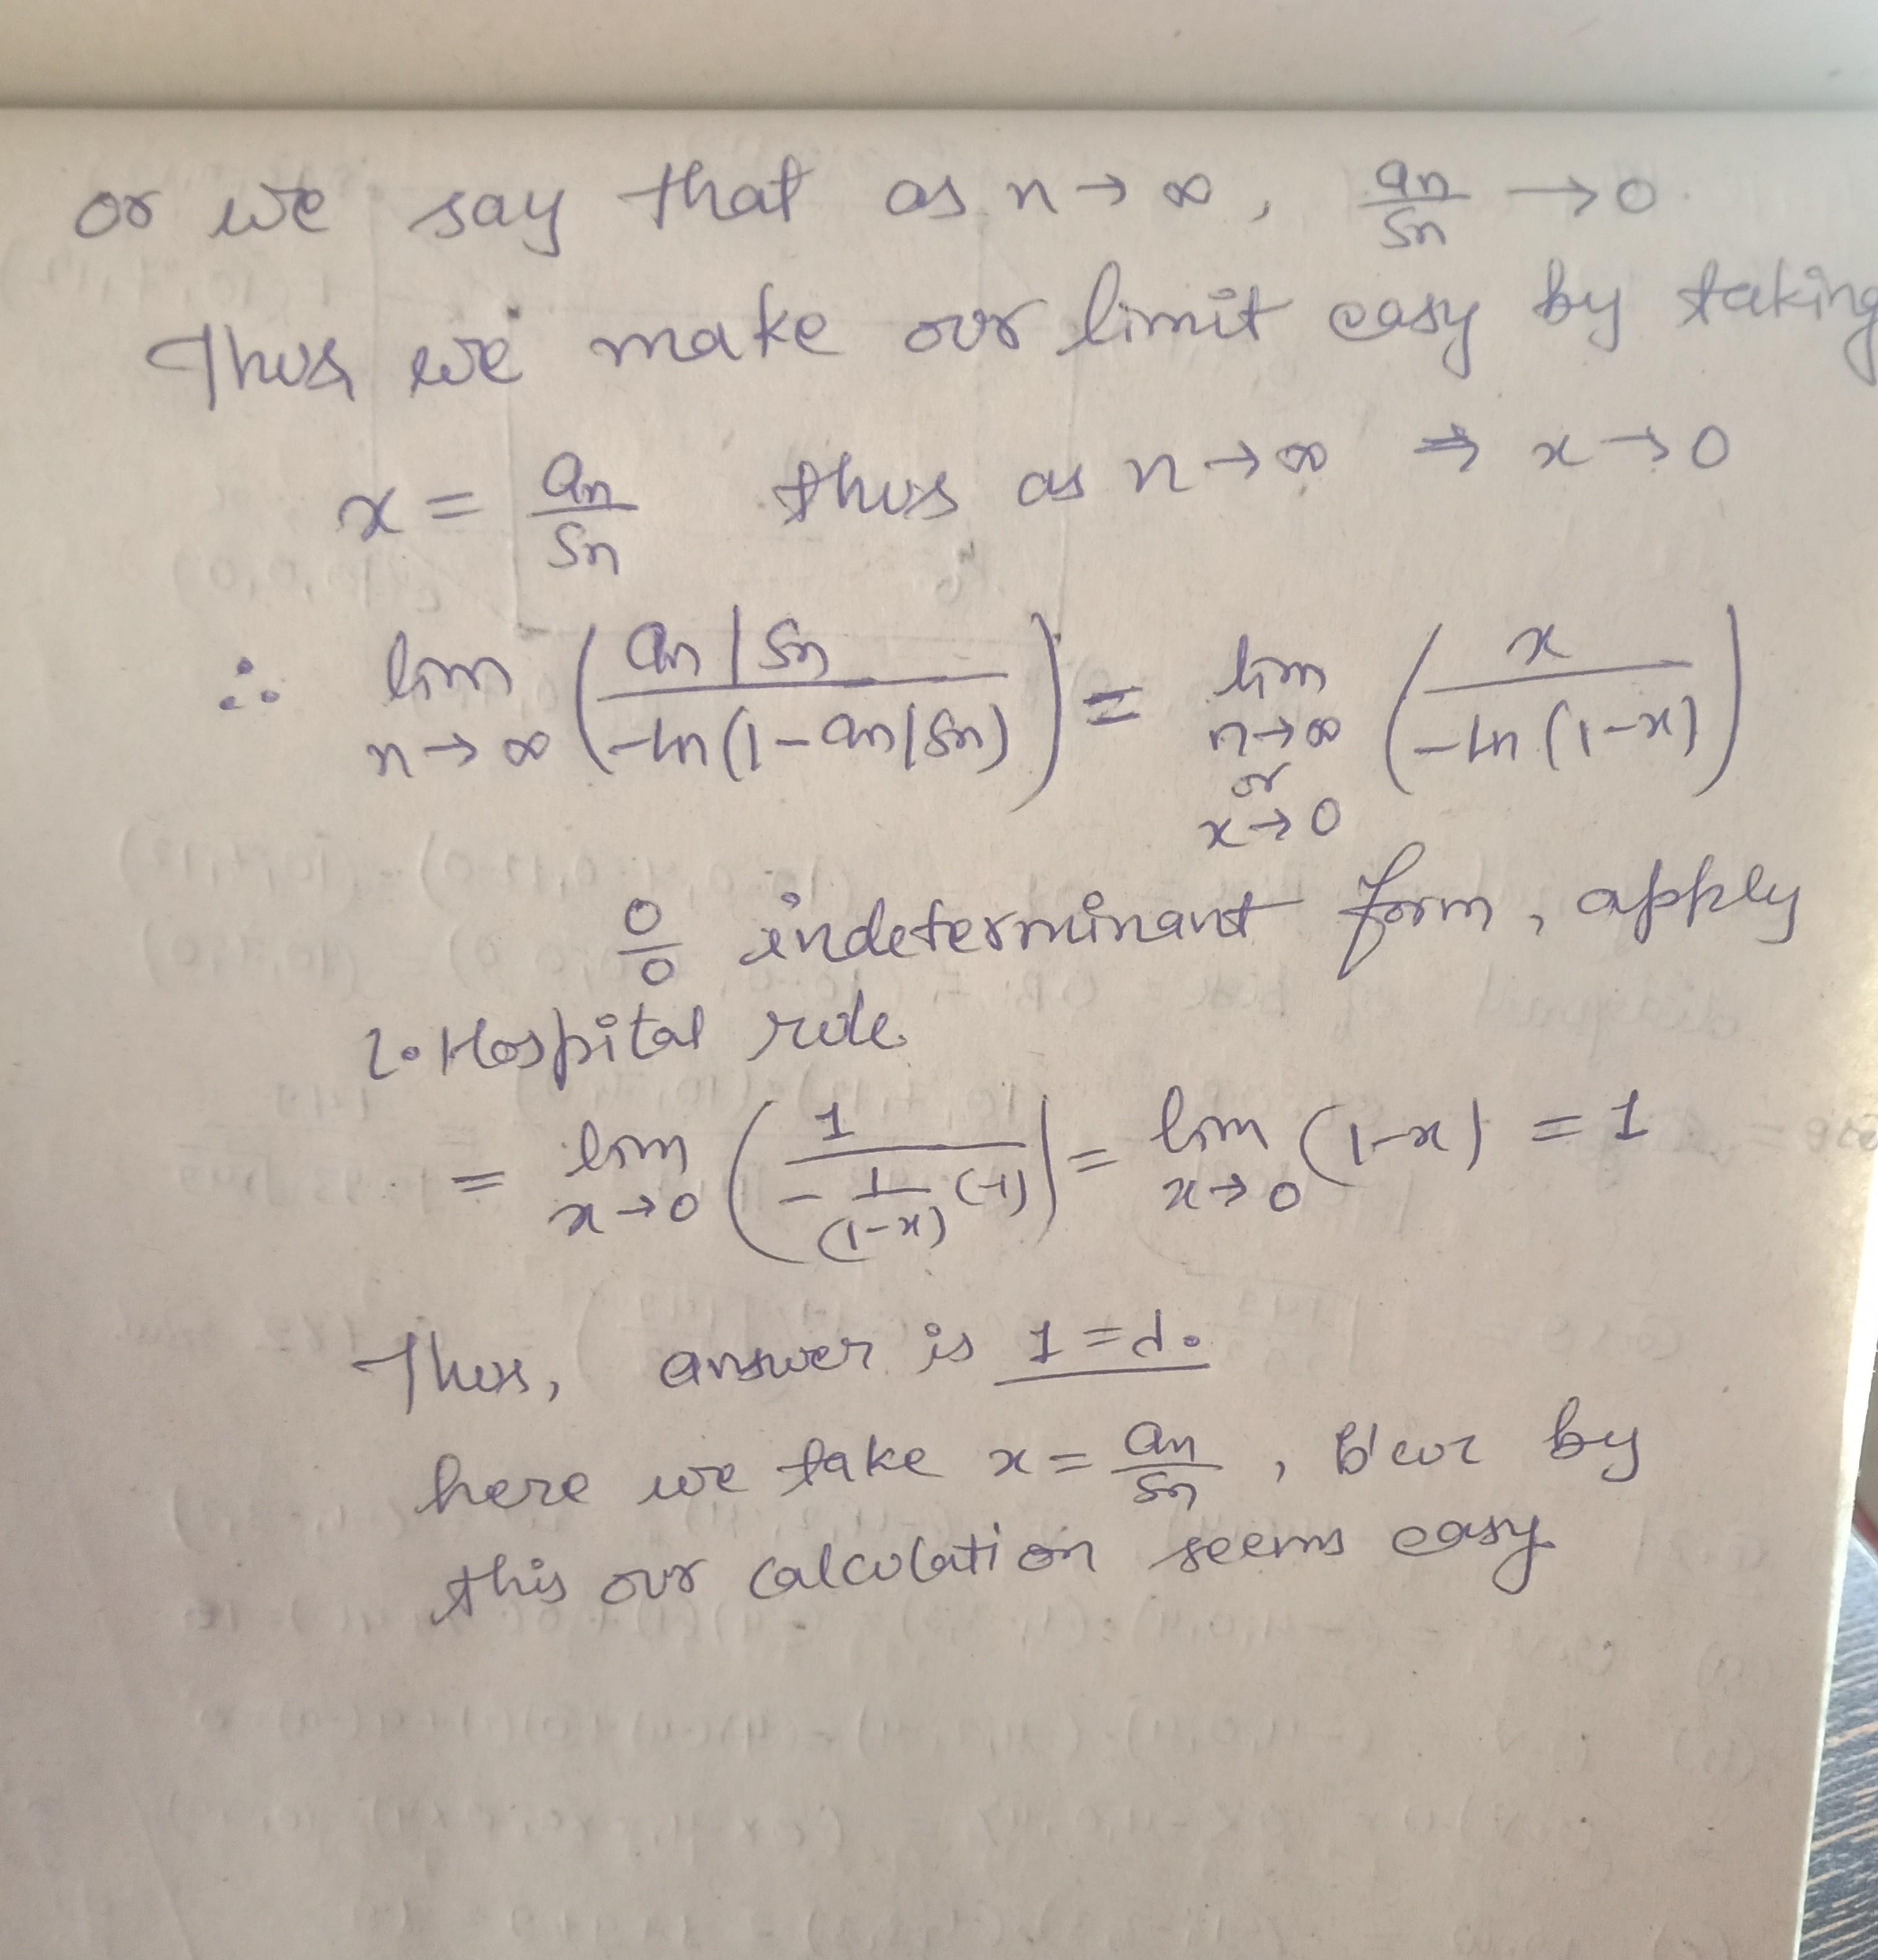 or we say that as n → ∞, an/Sn → 0.
Thus we make our limit easy by taking
x = an/Sn thus as n → ∞ ⇒ x → 0
∴ lim n → ∞ (an|Sn / -ln(1-an|Sn)) = lim n → ∞ or x → 0 (x / -ln(1-x))
0/0 indeterminant form, apply
L.Hospital rule.
= lim x → 0 (1 / -1/(1-x) (-1)) = lim x → 0 (1-x) = 1
Thus, answer is 1 = d.
here we take x = an/Sn, b'coz by
this our calculation seems easy.